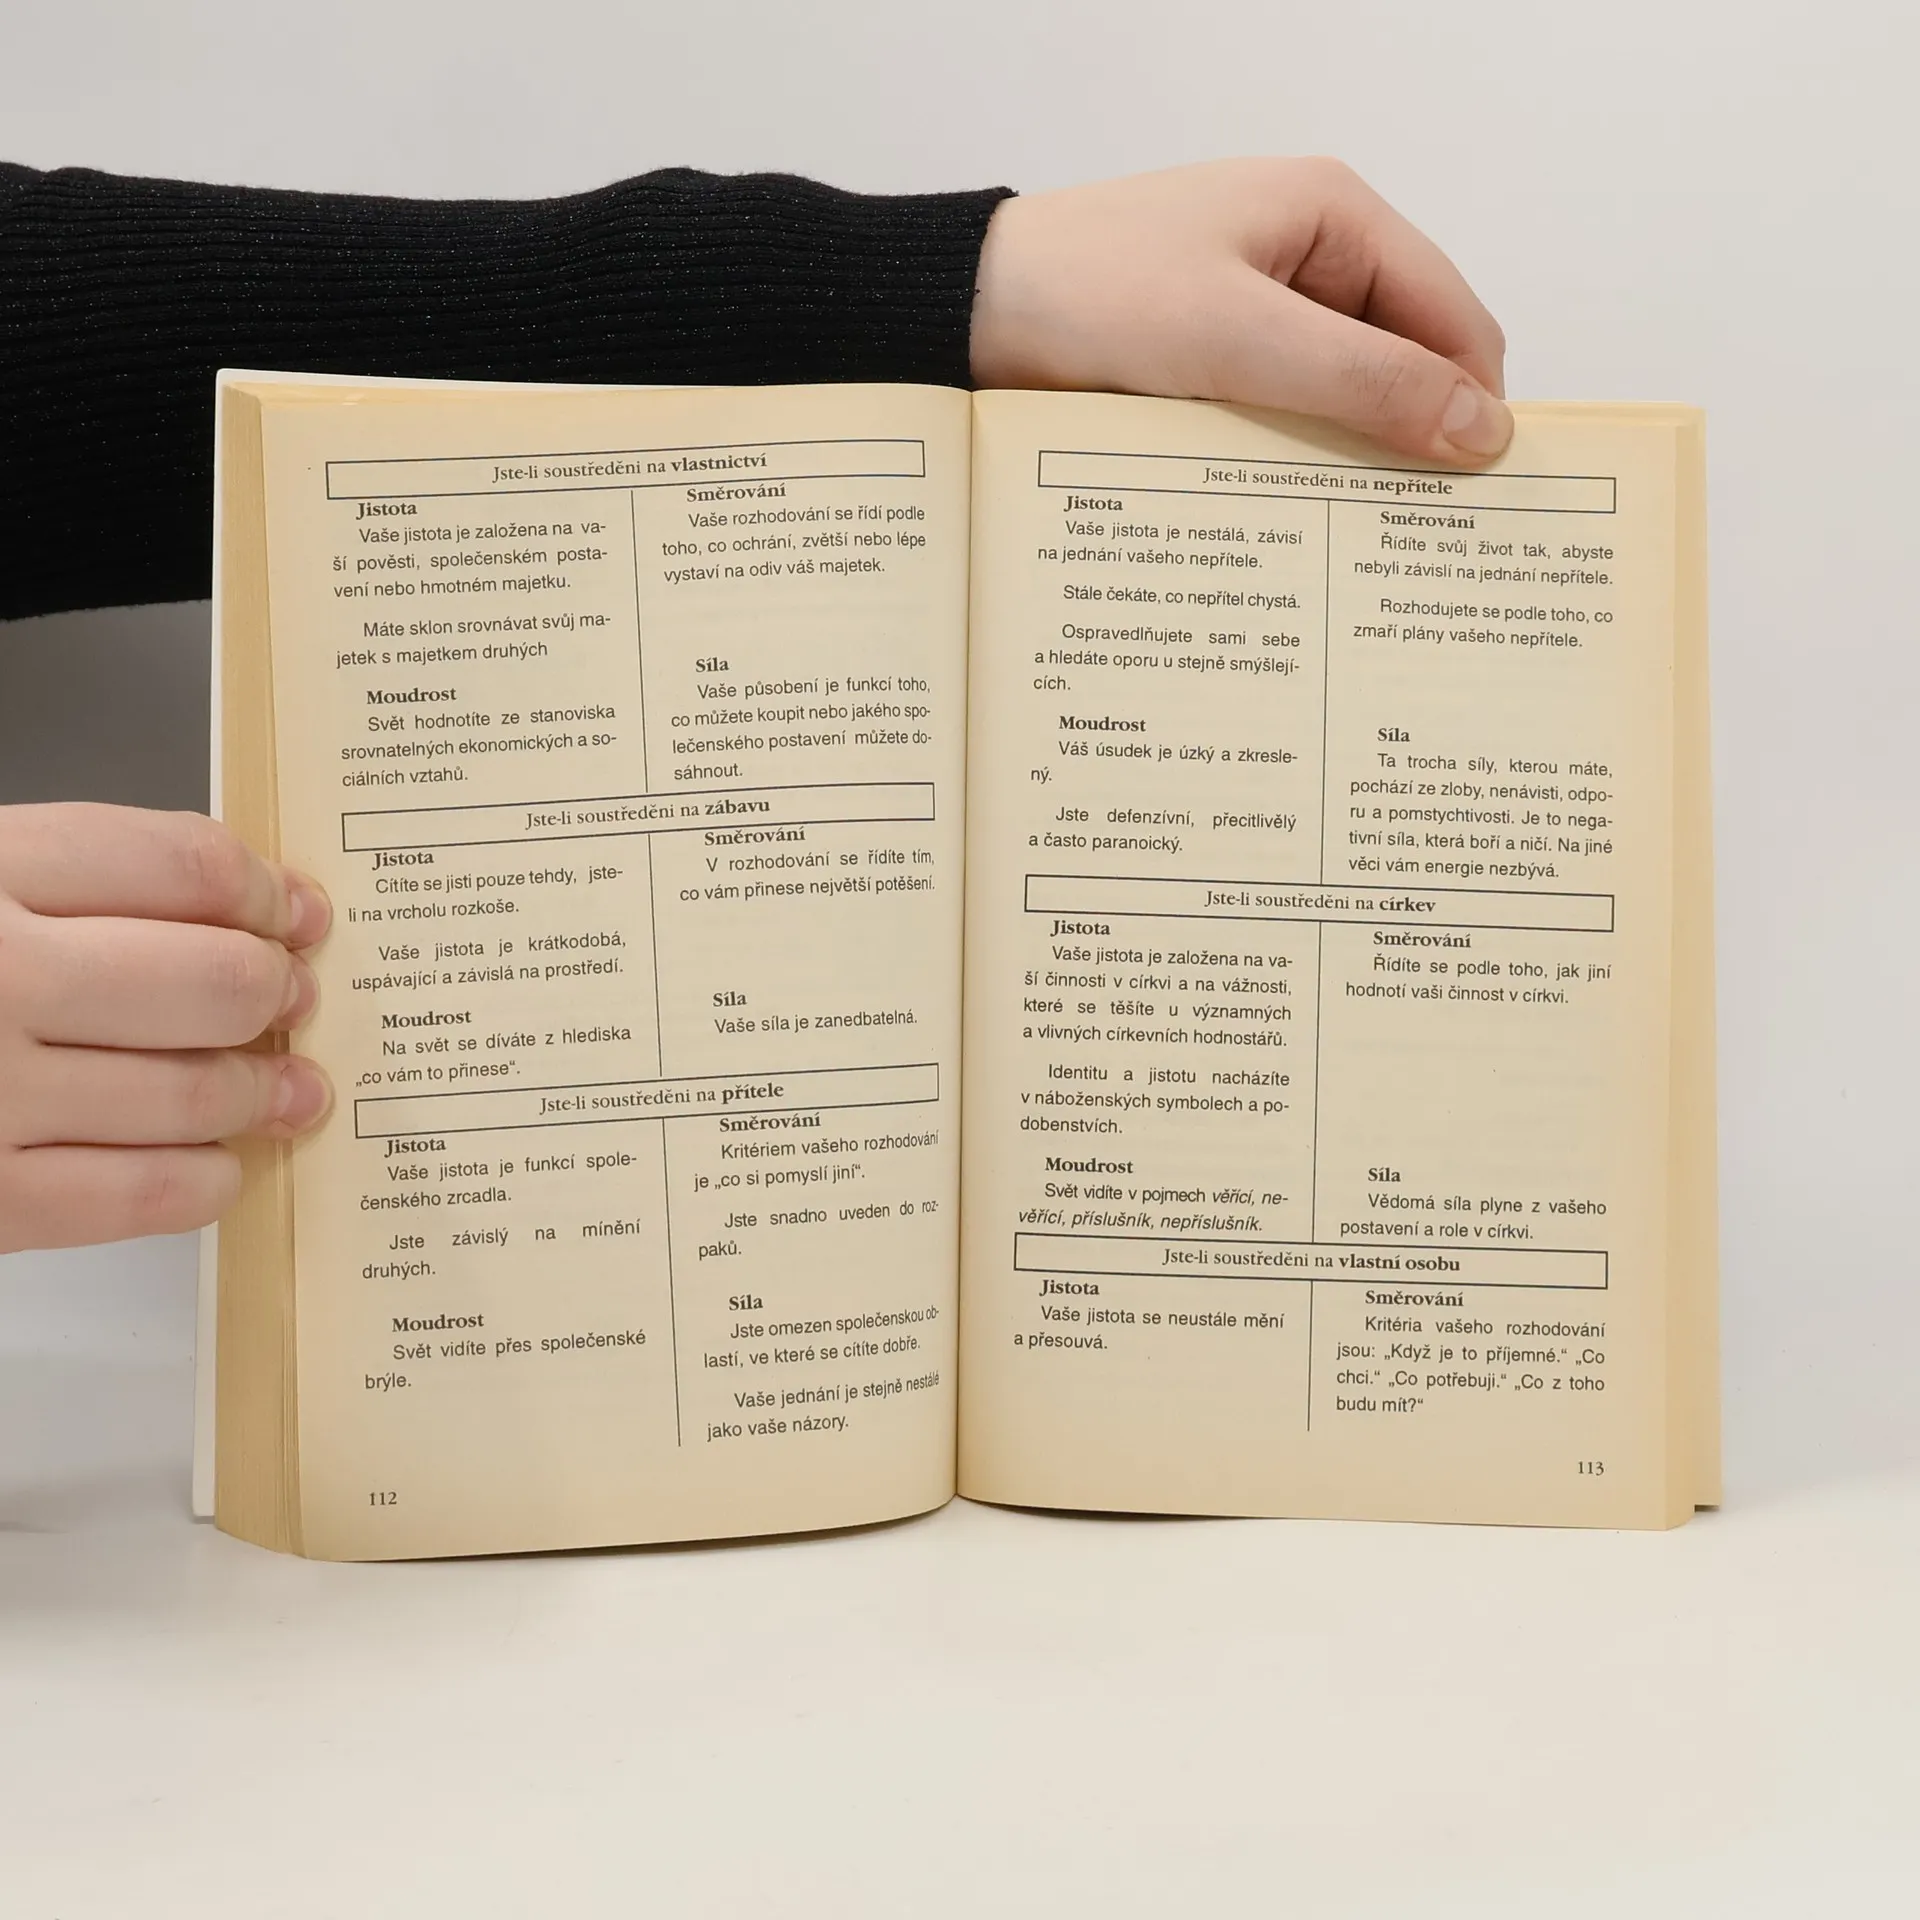 Jste-li soustředěni na vlastnictví
Jistota
Vaše jistota je založena na va-
ší pověsti, společenském posta-
vení nebo hmotném majetku.
Máte sklon srovnávat svůj ma-
jetek s majetkem druhých
Moudrost
Svět hodnotíte ze stanoviska
srovnatelných ekonomických a so-
ciálních vztahů.
Směrování
Vaše rozhodování se řídí podle
toho, co ochrání, zvětší nebo lépe
vystaví na odiv váš majetek.
Síla
Vaše působení je funkcí toho,
co můžete koupit nebo jakého spo-
lečenského postavení můžete do-
sáhnout.
Jste-li soustředěni na zábavu
Jistota
Cítíte se jisti pouze tehdy, jste-
li na vrcholu rozkoše.
Vaše jistota je krátkodobá,
uspávající a závislá na prostředí.
Moudrost
Na svět se díváte z hlediska
„co vám to přinese“.
Směrování
V rozhodování se řídíte tím,
co vám přinese největší potěšení.
Síla
Vaše síla je zanedbatelná.
Jste-li soustředěni na přítele
Jistota
Vaše jistota je funkcí spole-
čenského zrcadla.
Jste závislý na mínění
druhých.
Moudrost
Svět vidíte přes společenské
brýle.
Směrování
Kritériem vašeho rozhodování
je „co si pomyslí jiní“.
Jste snadno uveden do roz-
paků.
Síla
Jste omezen společenskou ob-
lastí, ve které se cítíte dobře.
Vaše jednání je stejně nestálé
jako vaše názory.
112
Jste-li soustředěni na nepřítele
Jistota
Vaše jistota je nestálá, závisí
na jednání vašeho nepřítele.
Stále čekáte, co nepřítel chystá.
Ospravedlňujete sami sebe
a hledáte oporu u stejně smýšlejí-
cích.
Moudrost
Váš úsudek je úzký a zkresle-
ný.
Jste defenzívní, přecitlivělý
a často paranoický.
Směrování
Řídíte svůj život tak, abyste
nebyli závislí na jednání nepřítele.
Rozhodujete se podle toho, co
zmaří plány vašeho nepřítele.
Síla
Ta trocha síly, kterou máte,
pochází ze zloby, nenávisti, odpo-
ru a pomstychtivosti. Je to nega-
tivní síla, která boří a ničí. Na jiné
věci vám energie nezbývá.
Jste-li soustředěni na církev
Jistota
Vaše jistota je založena na va-
ší činnosti v církvi a na vážnosti,
které se těšíte u významných
a vlivných církevních hodnostářů.
Identitu a jistotu nacházíte
v náboženských symbolech a po-
dobenstvích.
Moudrost
Svět vidíte v pojmech věřící, ne-
věřící, příslušník, nepříslušník.
Směrování
Řídíte se podle toho, jak jiní
hodnotí vaši činnost v církvi.
Síla
Vědomá síla plyne z vašeho
postavení a role v církvi.
Jste-li soustředěni na vlastní osobu
Jistota
Vaše jistota se neustále mění
a přesouvá.
Směrování
Kritéria vašeho rozhodování
jsou: „Když je to příjemné.“ „Co
chci.“ „Co potřebuji.“ „Co z toho
budu mít?“
113